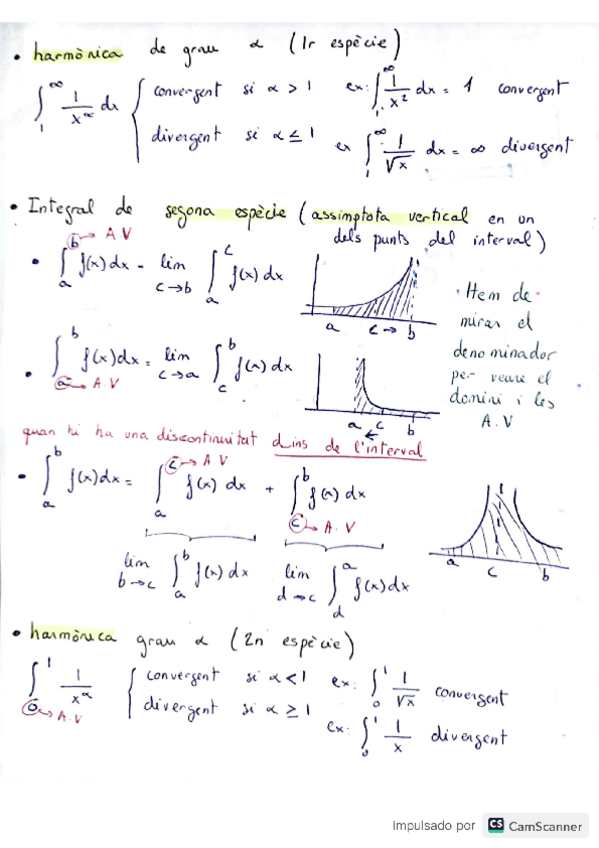 • harmònica de grau α (1r espècie)
∫₁^∞ 1/x^α dx { convergent si α > 1 ex: ∫₁^∞ 1/x² dx = 1 convergent
divergent si α ≤ 1 ex ∫₁^∞ 1/√x dx = ∞ divergent
• Integral de segona espècie (assimptota vertical en un
dels punts del interval)
• ∫ₐ^b→A.V f(x) dx = lim c→b ∫ₐ^c f(x) dx
a c → b
• Hem de
mirar el
denominador
per veure el
domini i les
A.V
• ∫ₐ→A.V^b f(x) dx = lim c→a ∫_c^b f(x) dx
a c b
←
quan hi ha una discontinuitat dins de l'interval
• ∫ₐ^b f(x) dx = ∫ₐ^c→A.V f(x) dx + ∫_c→A.V^b f(x) dx
a c b
lim b→c ∫ₐ^b f(x) dx lim d→c ∫_d^a f(x) dx
• harmònica grau α (2n espècie)
∫₀→A.V^1 1/x^α { convergent si α < 1 ex: ∫₀^1 1/√x convergent
divergent si α ≥ 1 ex: ∫₀^1 1/x divergent
Impulsado por CS CamScanner